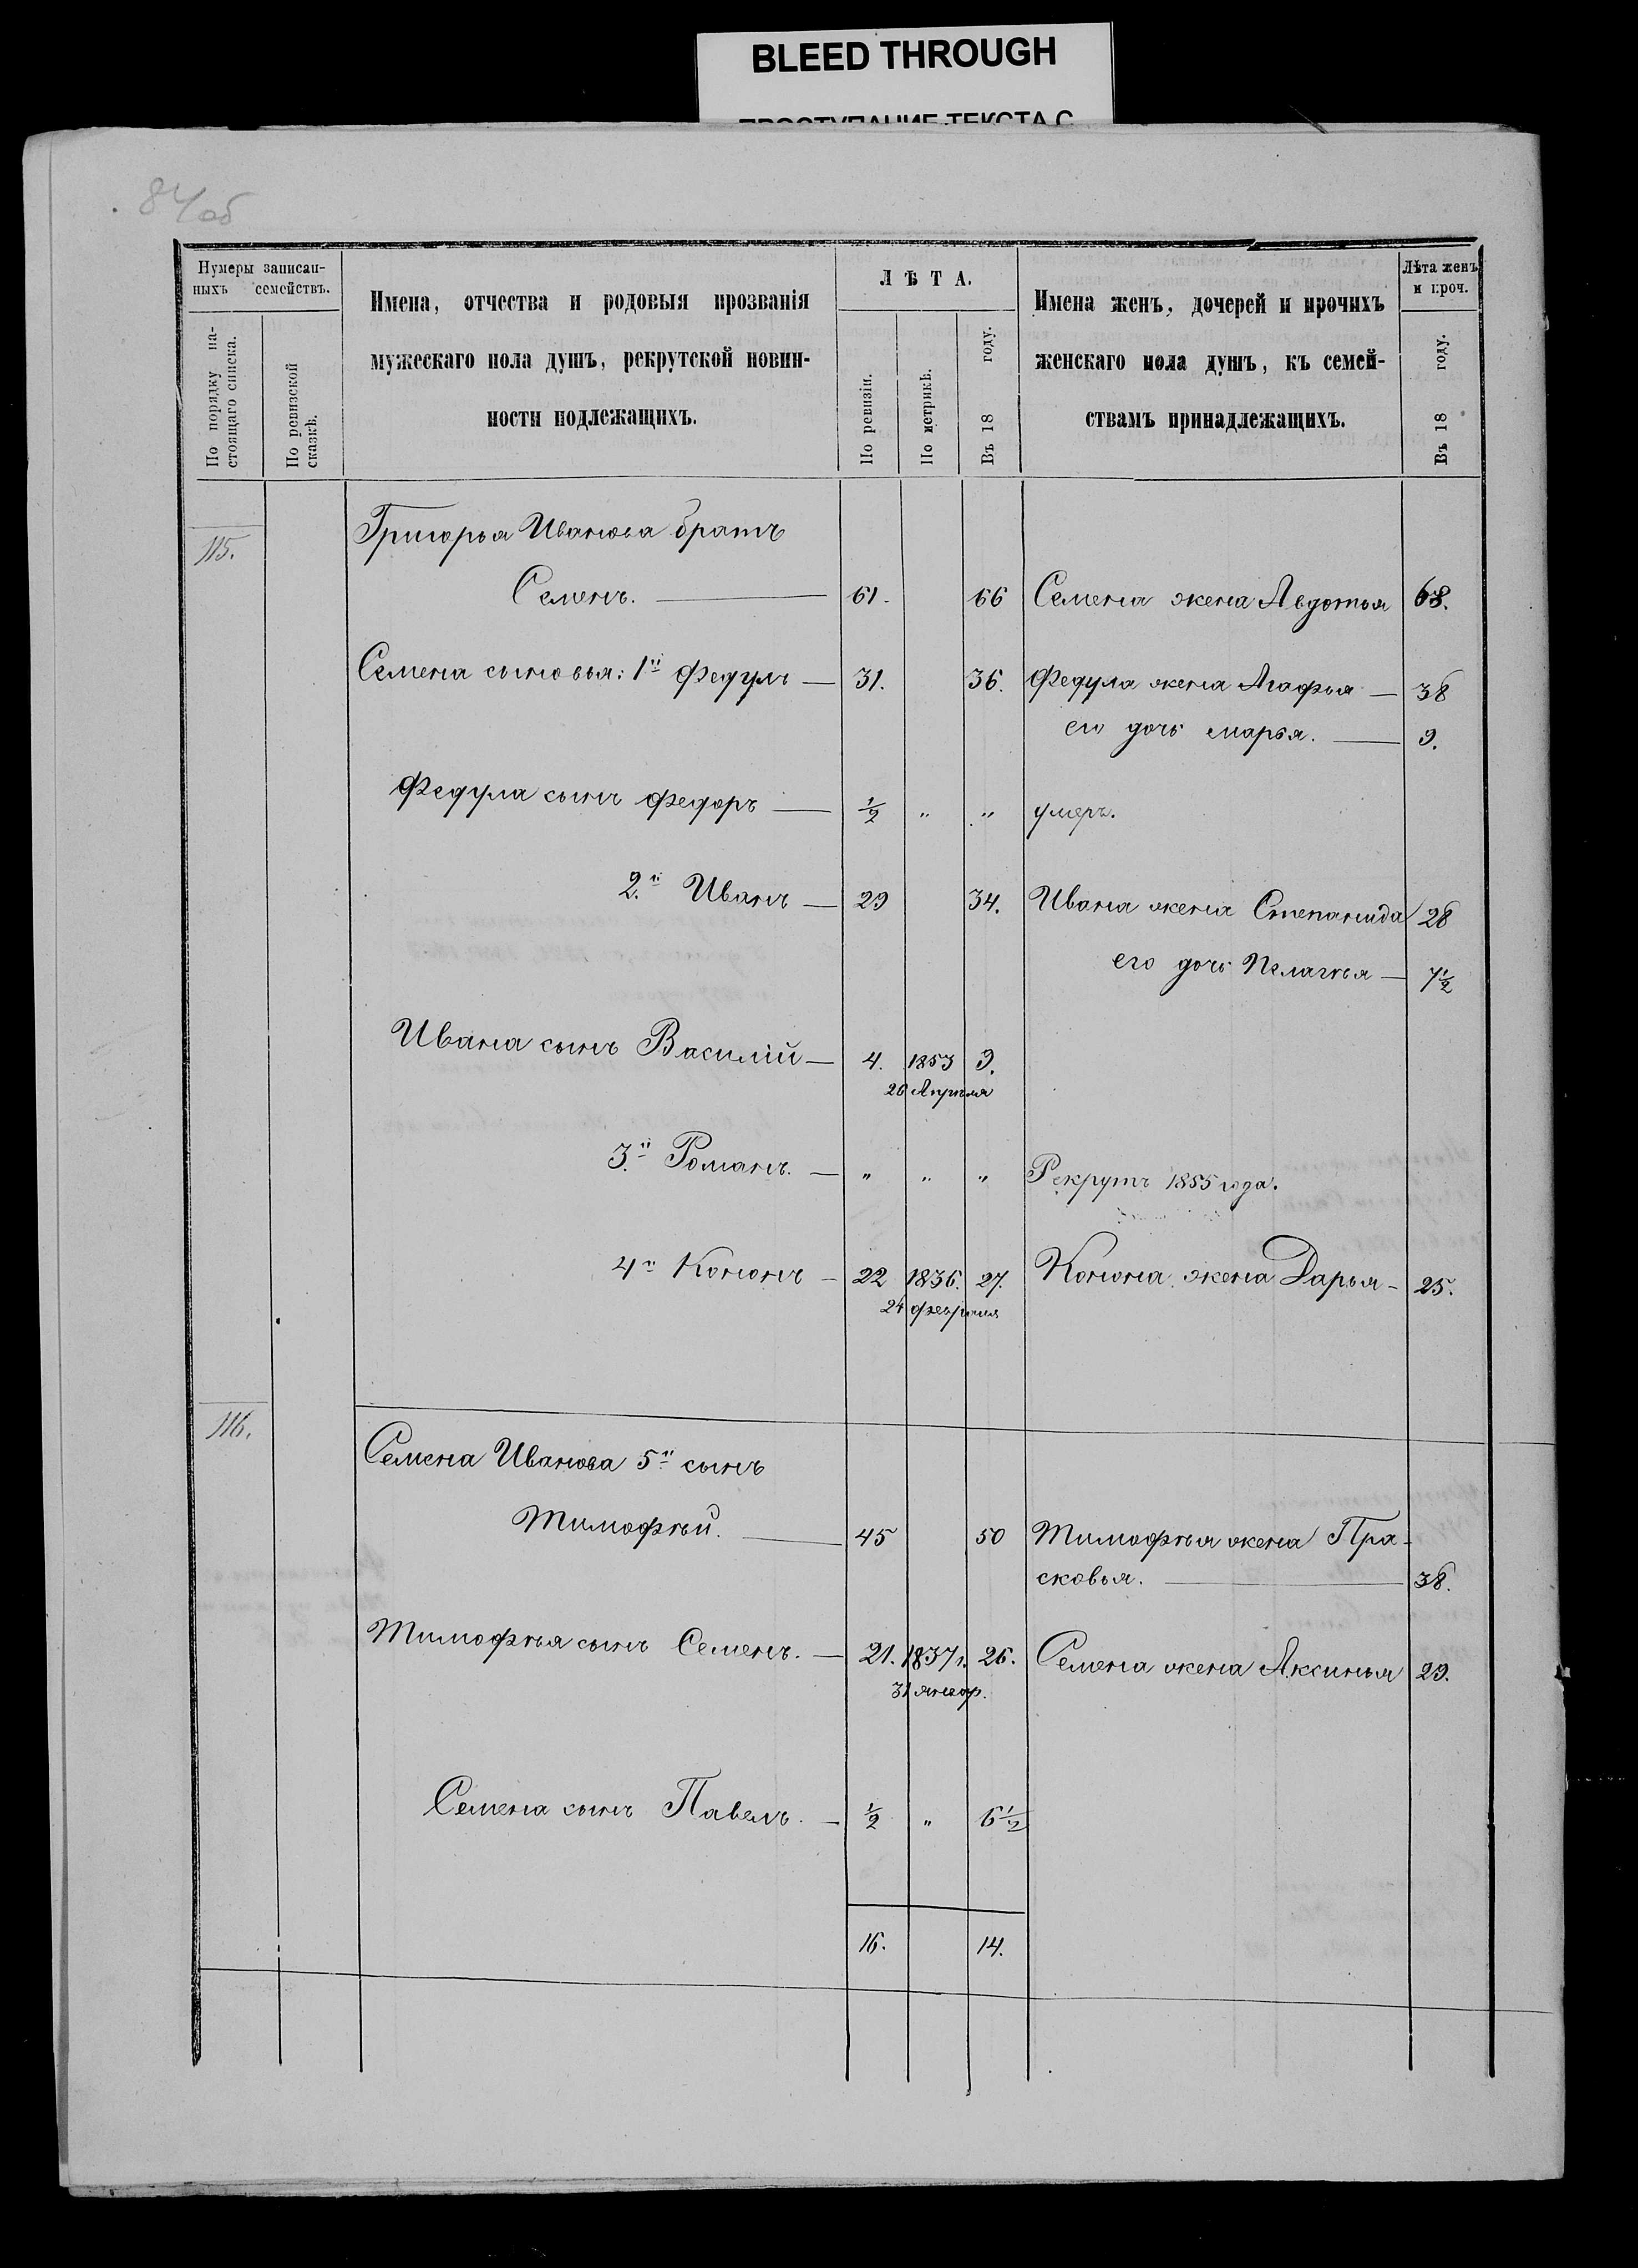 BLEED THROUGH
84 об
Нумеры записан-
ныхъ семействъ.
По порядку на-
стоящаго списка.
По ревизской
сказкѣ.
Имена, отчества и родовыя прозванія
мужескаго пола душъ, рекрутской повин-
ности подлежащихъ.
ЛѢТА.
По ревизіи.
По метрикѣ.
Въ 18 году.
Имена женъ, дочерей и прочихъ
женскаго пола душъ, къ семей-
ствамъ принадлежащихъ.
Лѣта женъ
и проч.
Въ 18 году.
115.
Григорья Иванова братъ
Семенъ. — 61. 66 Семена жена Авдотья 68.
Семена сыновья: 1й Федулъ — 31. 36. Федула жена Агафья — 38
его дочь Марья. — 9.
Федула сынъ Федоръ — ½ " " умеръ.
2.й Иванъ — 29 34. Ивана жена Степанида 28
его дочь Пелагѣя — 7½
Ивана сынъ Василій — 4. 1853 9.
26 Апрѣля
3.й Романъ. — " " " Рекрутъ 1855 года.
4й Кононъ — 22 1836. 27. Конона жена Дарья — 25.
24 февраля
116.
Семена Иванова 5й сынъ
Тимофѣй. — 45 50 Тимофѣя жена Пра-
сковья. — 38.
Тимофѣя сынъ Семенъ. — 21. 1837г. 26. Семена жена Аксинья 29.
31 январ.
Семена сынъ Павелъ. — ½ " 6½
16. 14.